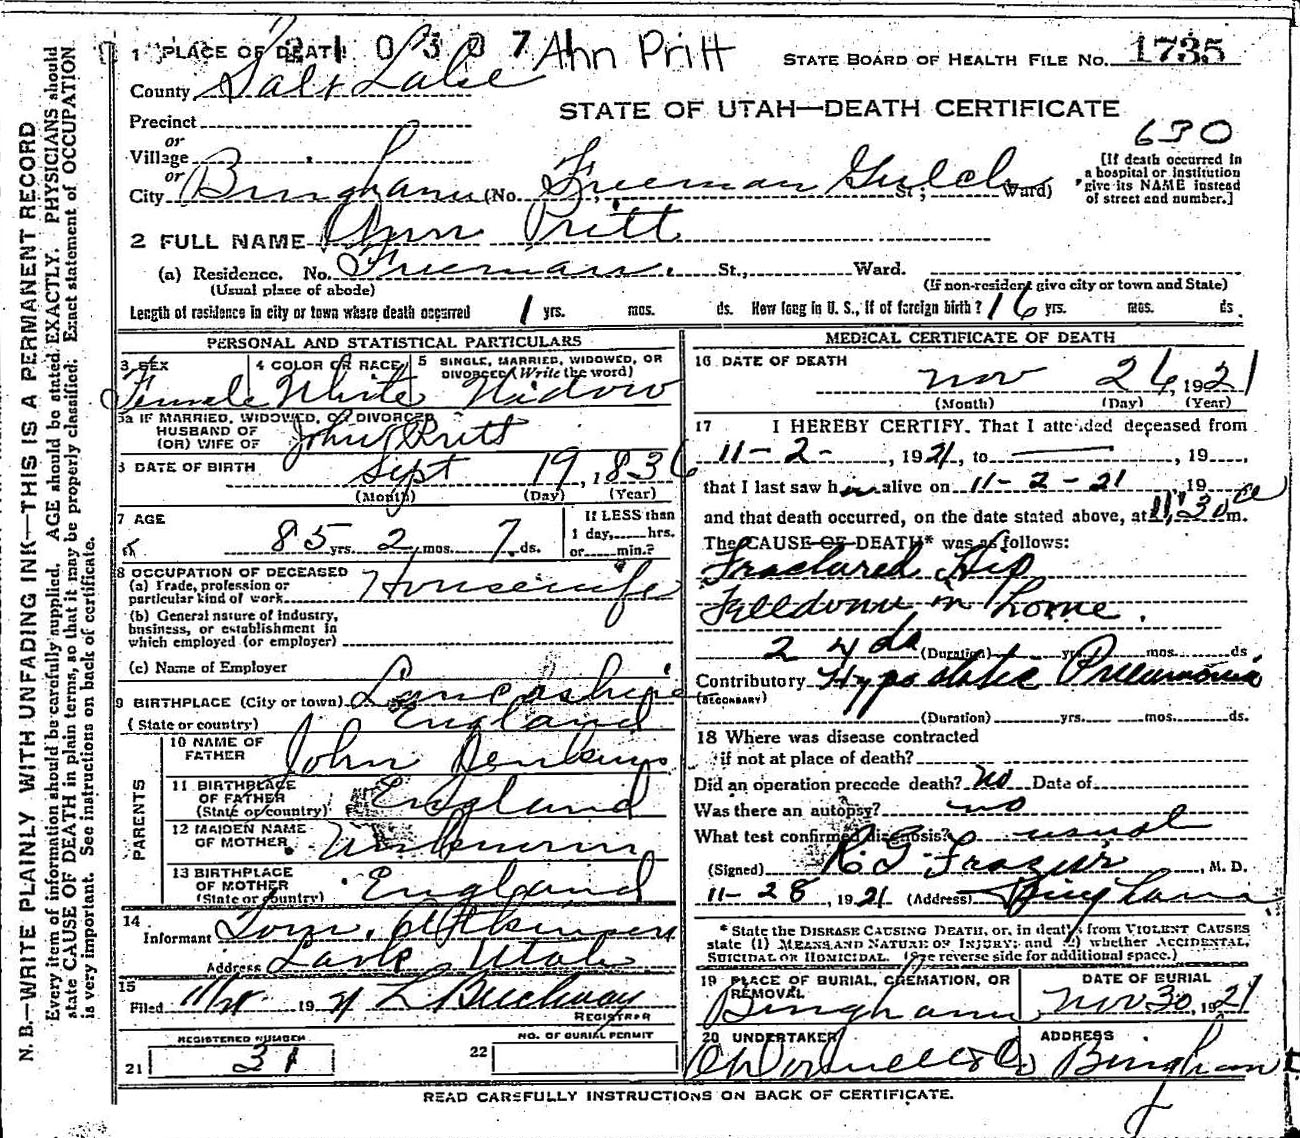 1 PLACE OF DEATH 2 1 0 3 0 7 1 Ann Pritt
STATE BOARD OF HEALTH FILE NO. 1735
County Salt Lake
STATE OF UTAH—DEATH CERTIFICATE
Precinct
630
or
Village
or
City Bingham (No. Freeman Gulch St; Ward)
[If death occurred in
a hospital or institution
give its NAME instead
of street and number.]
2 FULL NAME Ann Pritt
(a) Residence. No. Freeman. St., Ward.
(Usual place of abode)
(If non-resident give city or town and State)
Length of residence in city or town where death occurred 1 yrs. mos. ds. How long in U. S., if of foreign birth? 16 yrs. mos. ds.
PERSONAL AND STATISTICAL PARTICULARS
3 SEX
Female
4 COLOR OR RACE
White
5 SINGLE, MARRIED, WIDOWED, OR
DIVORCED (Write the word)
Widow
5a IF MARRIED, WIDOWED, OR DIVORCED
HUSBAND OF
(OR) WIFE OF John Pritt
6 DATE OF BIRTH Sept 19, 1836
(Month) (Day) (Year)
7 AGE
85 yrs. 2 mos. 7. ds.
If LESS than
1 day, hrs.
or min.?
8 OCCUPATION OF DECEASED
(a) Trade, profession or
particular kind of work Housewife
(b) General nature of industry,
business, or establishment in
which employed (or employer)
(c) Name of Employer
9 BIRTHPLACE (City or town) Lancashire
(State or country) England
PARENTS
10 NAME OF
FATHER John Jenkins
11 BIRTHPLACE
OF FATHER
(State or country) England
12 MAIDEN NAME
OF MOTHER Unknown
13 BIRTHPLACE
OF MOTHER
(State or country) England
14
Informant Tom. Atkinson
Address Lark Utah
15
Filed 11/28 1921 L Buchman
REGISTRAR
REGISTERED NUMBER
21 31
NO. OF BURIAL PERMIT
22
MEDICAL CERTIFICATE OF DEATH
16 DATE OF DEATH
Nov 26, 1921
(Month) (Day) (Year)
17 I HEREBY CERTIFY. That I attended deceased from
11-2-, 1921, to , 19
that I last saw her alive on 11-2-21, 19
and that death occurred, on the date stated above, at 11:30 a m.
The CAUSE OF DEATH* was as follows:
Fractured Hip
Fall down in home.
24 da (Duration) yrs. mos. ds
Contributory Hypostatic Pneumonia
(SECONDARY)
(Duration) yrs. mos. ds.
18 Where was disease contracted
if not at place of death?
Did an operation precede death? No Date of
Was there an autopsy? no
What test confirmed diagnosis? usual
(Signed) R G Frazier, M. D.
11-28, 1921 (Address) Bingham
* State the DISEASE CAUSING DEATH, or, in deaths from VIOLENT CAUSES
state (1) MEANS AND NATURE OF INJURY; and (2) whether ACCIDENTAL,
SUICIDAL OR HOMICIDAL. (See reverse side for additional space.)
19 PLACE OF BURIAL, CREMATION, OR
REMOVAL
Bingham
DATE OF BURIAL
Nov 30, 1921
20 UNDERTAKER
O'Donnell & Co
ADDRESS
Bingham
READ CAREFULLY INSTRUCTIONS ON BACK OF CERTIFICATE.
N. B.—WRITE PLAINLY WITH UNFADING INK—THIS IS A PERMANENT RECORD
Every item of information should be carefully supplied. AGE should be stated EXACTLY. PHYSICIANS should
state CAUSE OF DEATH in plain terms, so that it may be properly classified. Exact statement of OCCUPATION
is very important. See instructions on back of certificate.